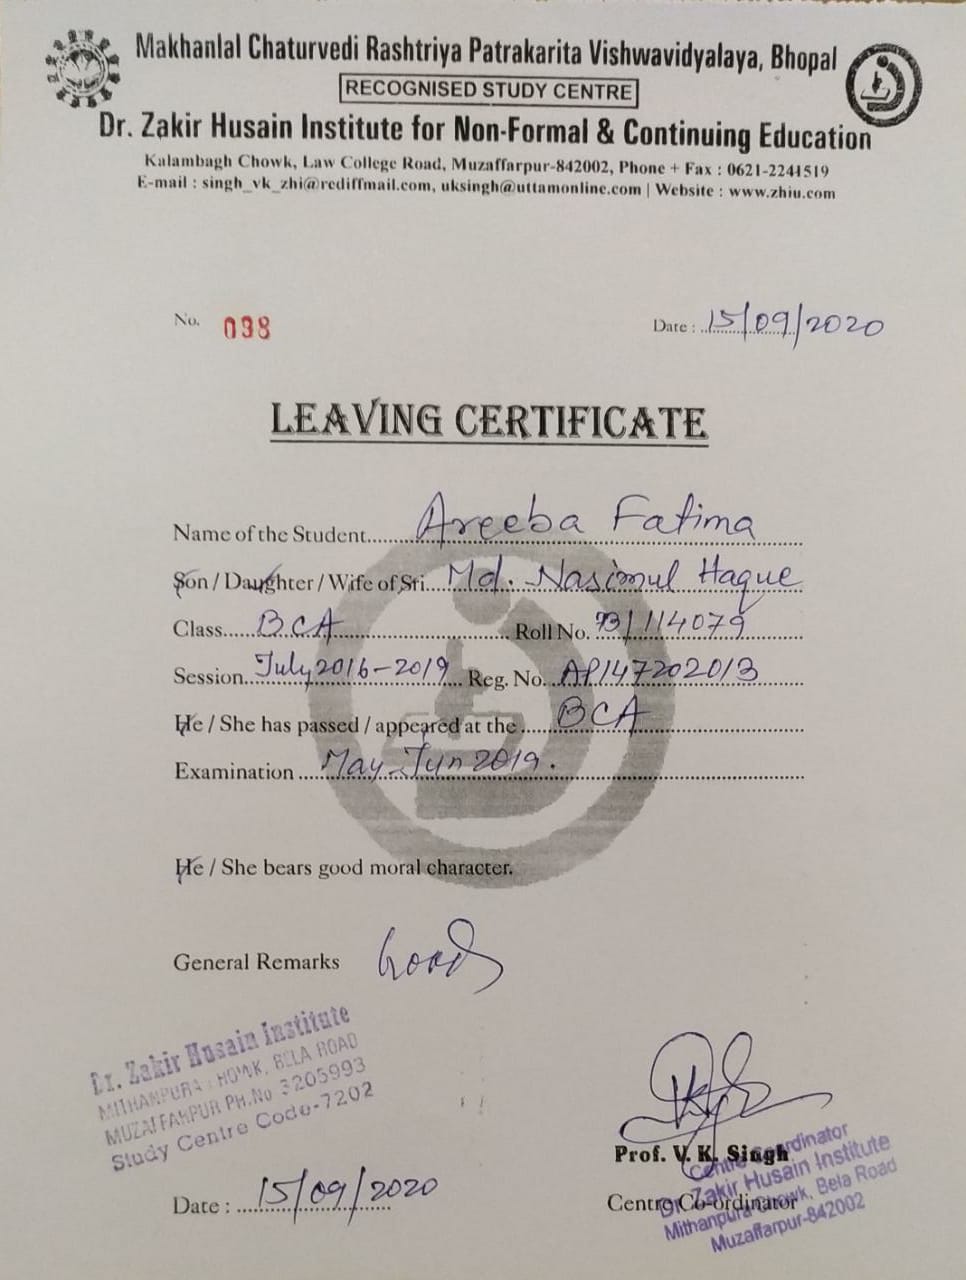 Makhanlal Chaturvedi Rashtriya Patrakarita Vishwavidyalaya, Bhopal
RECOGNISED STUDY CENTRE
Dr. Zakir Husain Institute for Non-Formal & Continuing Education
Kalambagh Chowk, Law College Road, Muzaffarpur-842002, Phone + Fax : 0621-2241519
E-mail : singh_vk_zhi@rediffmail.com, uksingh@uttamonline.com | Website : www.zhiu.com
No. 038 Date : 15/09/2020
LEAVING CERTIFICATE
Name of the Student Areeba Fatima
Son / Daughter / Wife of Sri Md. Nasimul Haque
Class BCA Roll No. 73/114079
Session July 2016-2019 Reg. No. AP147202013
He / She has passed / appeared at the BCA
Examination May-Jun 2019.
He / She bears good moral character.
General Remarks Good
Dr. Zakir Husain Institute
MITHANPURA CHOWK, BELA ROAD
MUZAFFARPUR PH.No 3205993
Study Centre Code-7202
Prof. V. K. Singh
Centre Co-ordinator
Date : 15/09/2020
Centre Coordinator
Dr. Zakir Husain Institute
Mithanpura Chowk, Bela Road
Muzaffarpur-842002